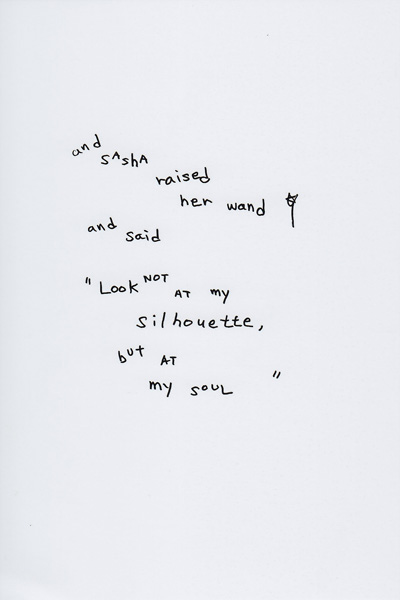 and SAshA
raised
her wand
and said
"Look NOT AT my
silhouette,
but AT
my SOUL "